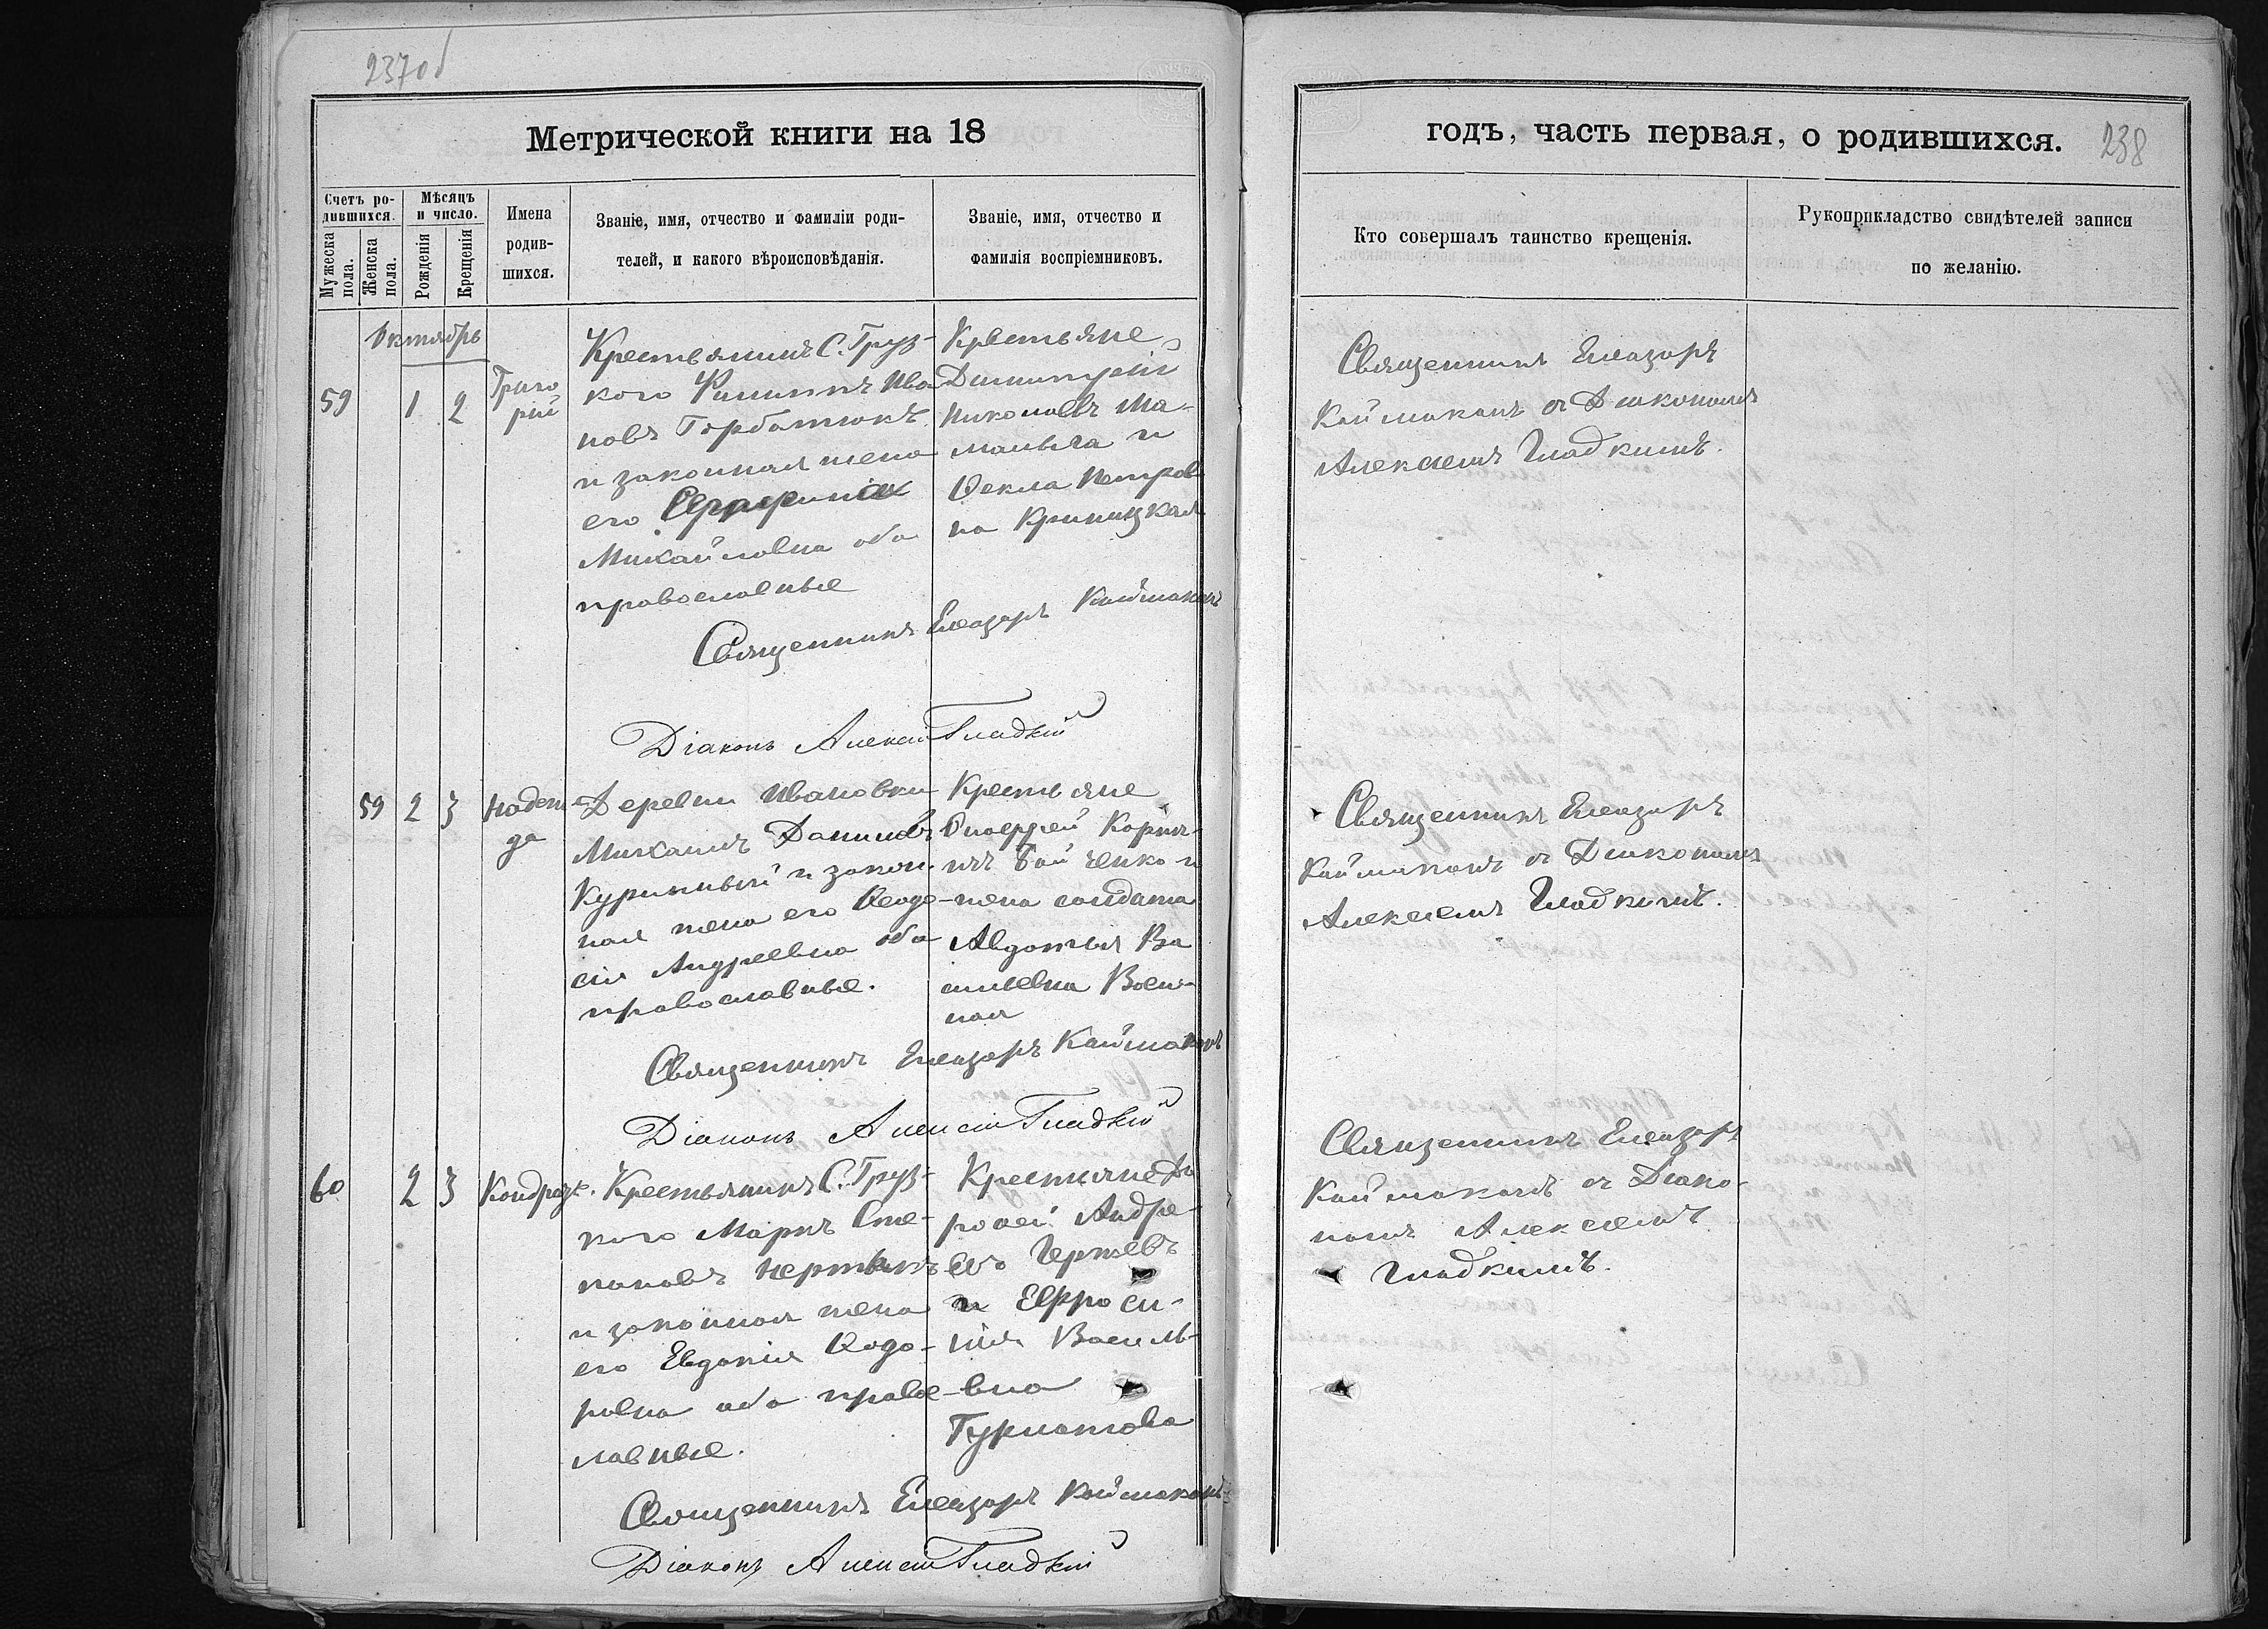 237об
Метрической книги на 18
Счетъ ро-
дившихся.
Мужеска
пола.
Женска
пола.
Мѣсяцъ
и число.
Рожденія
Крещенія
Имена
родив-
шихся.
Званіе, имя, отчество и фамиліи роди-
телей, и какого вѣроисповѣданія.
Званіе, имя, отчество и
фамилія воспріемниковъ.
Октябрь
59
1
2
Григо
рій
Крестьянинъ С. Груз-
кого Филиппъ Ива
новъ Горбатюкъ
и законная жена
его
Михайловна оба
православные
Крестьяне
Димитрій
Николаевъ Ма-
малыга и
Ѳекла Петров
на Криницкая
Священникъ Елеазаръ Каймаканъ
Діаконъ Алексій Гладкій
59
2
3
Надеж
да
Деревни Ивановки
Михаилъ Даниловъ
и закон-
ная жена его Ѳеодо-
сія Андреевна оба
православные.
Крестьяне
Онофрей Корни-
ловъ Бойченко и
жена солдата
Авдотья Ва
сильевна Воен-
ная
Священникъ Елеазаръ Каймаканъ
Діаконъ Алексій Гладкій
60
2
3
Кондратъ.
Крестьянинъ С. Груз-
кого Маркъ Сте-
пановъ
и законная жена
его Евдокія Ѳодо-
ровна оба правос-
лавные.
Крестьяне До
рофей Андре-
евъ
и Евфроси-
нія Василь-
евна
Священникъ Елеазаръ Каймаканъ
Діаконъ Алексій Гладкій
годъ, часть первая, о родившихся.
238
Кто совершалъ таинство крещенія.
Рукоприкладство свидѣтелей записи
по желанію.
Священникъ Елеазаръ
Каймаканъ съ Діакономъ
Алексеемъ Гладкимъ.
Священникъ Елеазаръ
Каймаканъ съ Діакономъ
Алексеемъ Гладкимъ.
Священникъ Елеазаръ
Каймаканъ съ Діако-
номъ Алексеемъ
Гладкимъ.